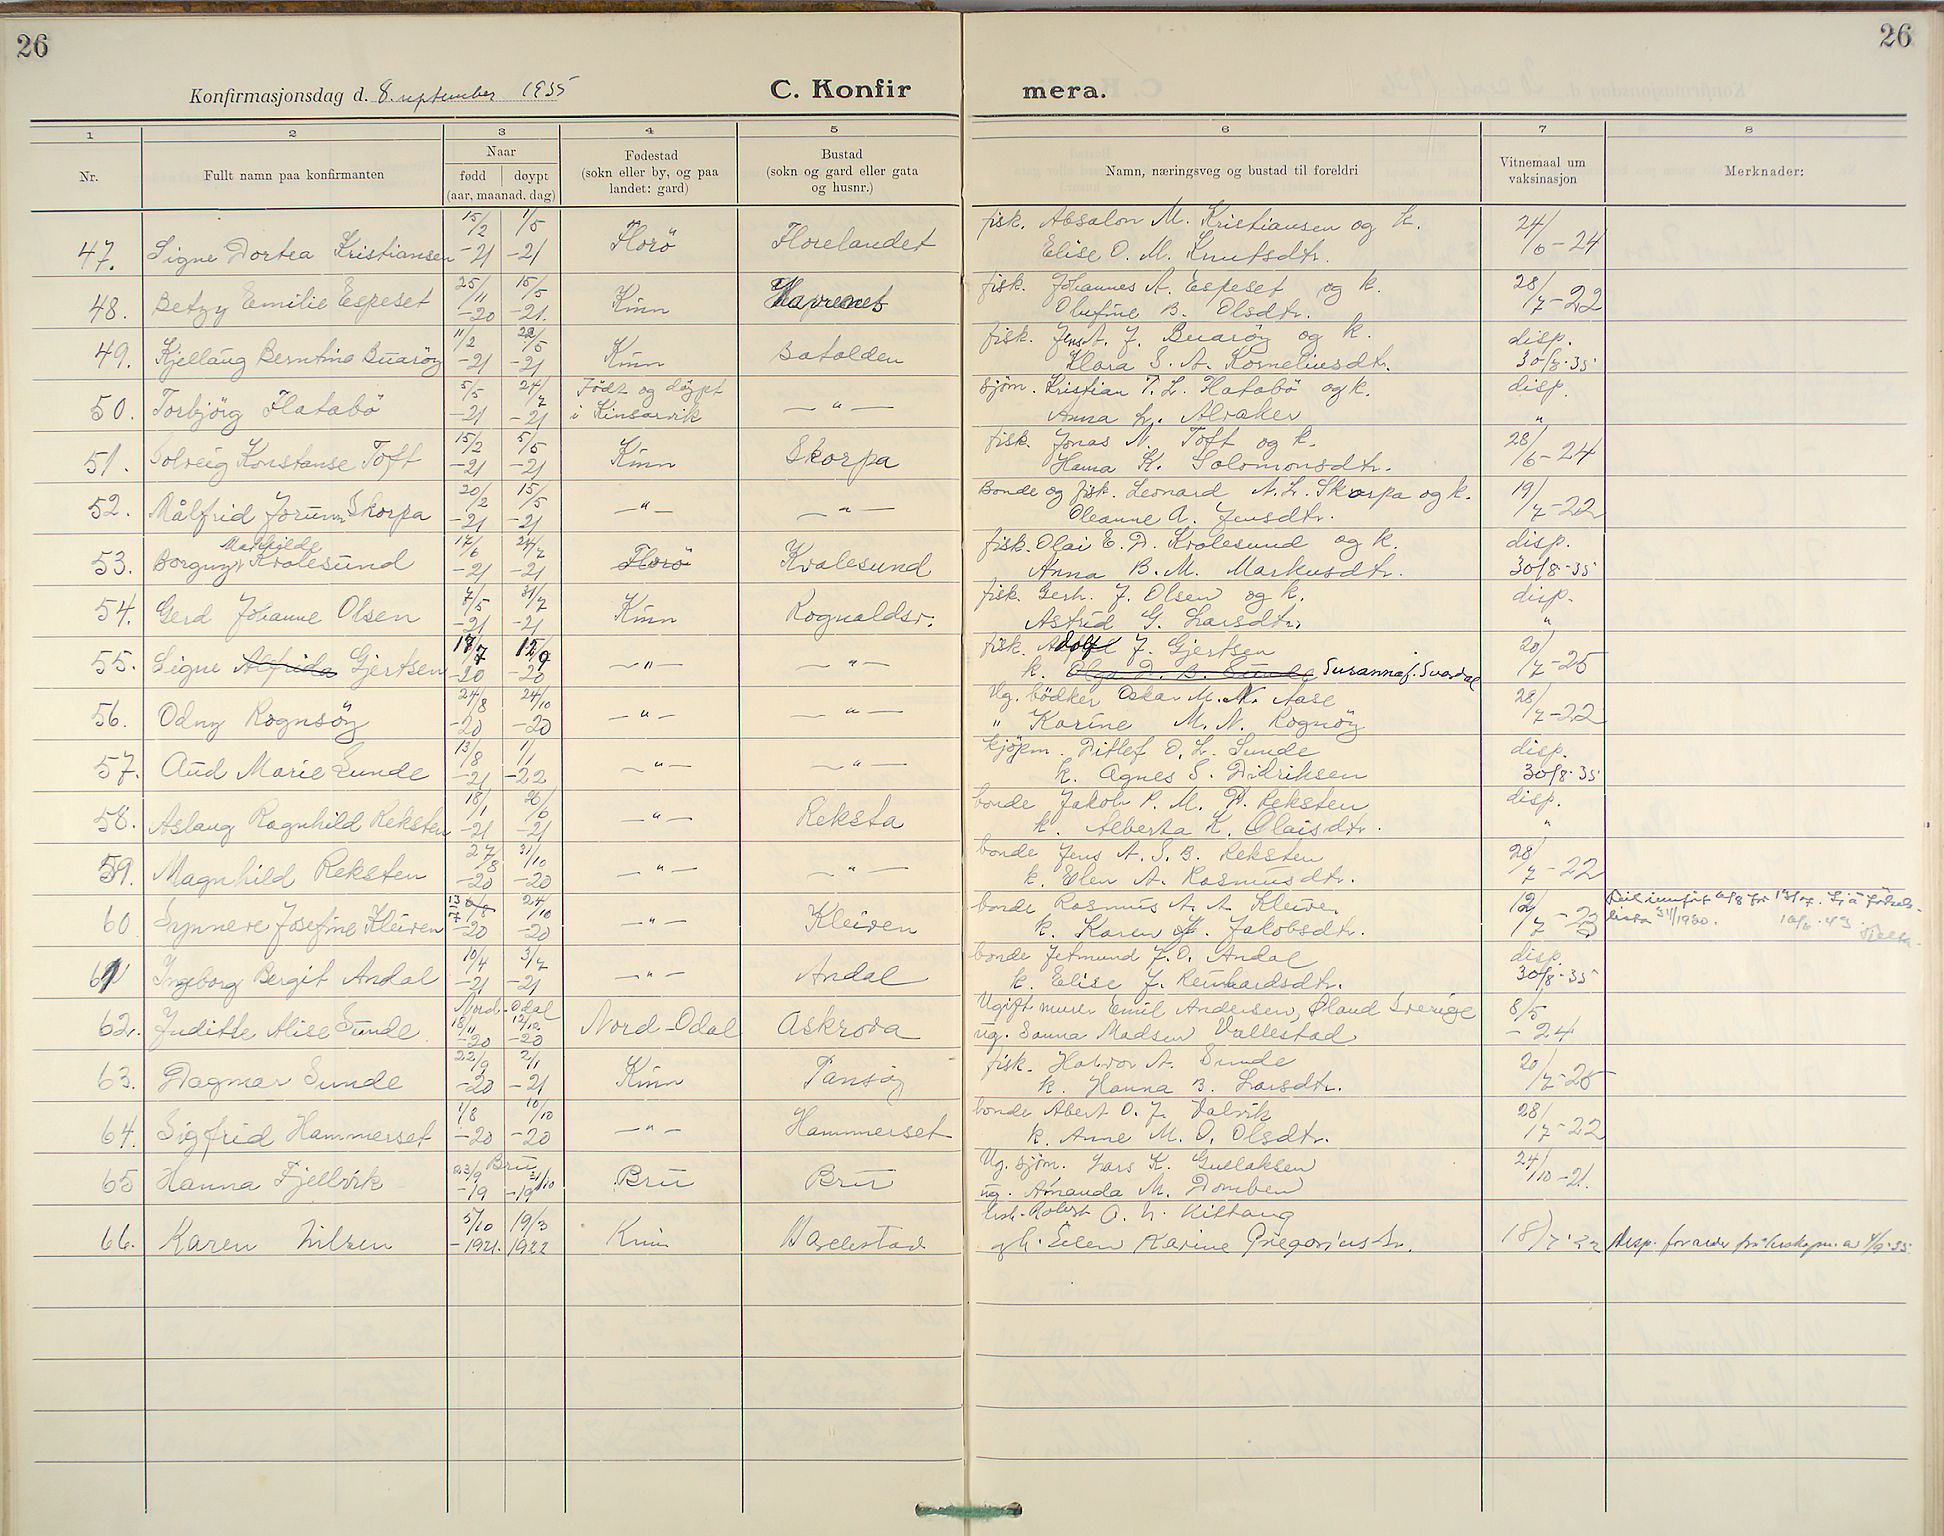 26
26
Konfirmasjonsdag d. 8. september 1935
C. Konfirmera.
1 2 3 4 5 6 7 8
Nr.
Fullt namn paa konfirmanten
Naar
fødd døypt
(aar, maanad. dag)
Fødestad
(sokn eller by, og paa
landet: gard)
Bustad
(sokn og gard eller gata
og husnr.)
Namn, næringsveg og bustad til foreldri
Vitnemaal um
vaksinasjon
Merknader:
47. Signe Dortea Kristiansen 15/2 -21 1/5 -21 Florö Florelandet fisk. Absalon M. Kristiansen og k. 24/6-24
Elise O. M. Knutsdtr.
48. Betzy Emilie Espeset 25/11 -20 15/5 -21. Kinn fisk. Johannes A. Espeset og k. 28/7-22
Olufine B. Olsdtr.
49. Kjellaug Berntine Buaröy 11/2 -21 22/5 -21 Kinn Batalden fisk. Jens A. J. Buaröy og k. disp.
Klara S. A. Korneliusdtr. 30/8-35
50. Torbjörg Flatabö 5/5 -21 24/7 -21 Född og döypt i Kinsarvik — " — sjöm. Kristian T. L. Flatabö og k. disp.
Anna L. Alvaker "
51. Solveig Konstanse Toft 15/2 -21 5/5 -21 Kinn Skorpa fisk. Jonas N. Toft og k. 28/6-24
Hanna K. Solomonsdtr.
52. Målfrid Jorunn Skorpa 20/2 -21 15/5 -21 — " — — " — Bonde og fisk. Leonard A. L. Skorpa og k. 19/7-22
Oleanne A. Jensdtr.
53. Borgny Mathilde Kvalesund 17/6 -21 24/7 -21 Florö Kvalesund fisk. Olai E. D. Kvalesund og k. disp.
Anna B. M. Markusdtr. 30/8-35
54. Gerd Johanne Olsen 7/5 -21 31/7 -21 Kinn Rognaldsv. fisk. Gerh. J. Olsen og k. disp.
Astrid G. Larsdtr. "
55. Signe Alfrida Gjertsen 18/7 -20 12/9 -20 — " — — " — fisk. Adolf J. Gjertsen 20/7-25
k. Olga D. B. Sunde Susanna J. Svardal
56. Odny Rognsöy 24/8 -20 24/10 -20 — " — — " — Ug. bödker Oskar M. N. Aase 28/7-22
" Karine M. N. Rognöy
57. Aud Marie Sunde 13/8 -21 1/1 -22 — " — — " — kjöpm. Ditlef O. L. Sunde disp.
k. Agnes S. Didriksen 30/8-35
58. Aslaug Ragnhild Reksten 18/1 -21 26/6 -21 — " — Reksta bonde Jakob P. M. D. Reksten disp.
k. Alberta K. Olaisdtr. "
59. Magnhild Reksten 27/8 -20 31/10 -20 — " — — " — bonde Jens A. S. B. Reksten 28/7-22
k. Elen A. Rasmusdtr.
60 Synneve Josefine Kleiven 13/7 6/8 -20 24/10 -20 — " — Kleiven bonde Rasmus A. A. Kleiven 12/7-23
k. Karen J. Jakobsdtr. 1930.
61 Ingeborg Bergit Andal 10/4 -21 3/7 -21 — " — Andal bonde Jetmund J. O. Andal disp.
k. Elise J. Reinhardsdtr. 30/8-35
62. Judithe Alise Sunde Nord-Odal 18/11 -20 12/12 -20 Nord-Odal Askrova Ugift murer Emil Andersen, Öland Sverige 8/5
ug. Sanna Madsen Vallestad - 24
63. Dagmar Sunde 22/9 -20 2/1 -21 Kinn Tansöy fisk. Halvor A. Sunde 20/7-25
k. Hanna B. Larsdtr.
64. Sigfrid Hammerset 1/8 -20 10/10 -20 — " — Hammerset bonde Abert O. J. Valvik 28/7-22
k. Anne M. O. Olsdtr.
65 Hanna Fjellvik 23/9 -19 Bru 21/10 -19 Bru Bru Ug. sjöm. Lars K. Gullaksen 24/10-21.
ug. Amanda M. Domben
66. Karen Nilsen 5/10 -1921. 19/3 1922 Kinn Robert O. N. Kittang
og h. Ellen Karine Gregoriusdr. 18/7-22 disp. for alder